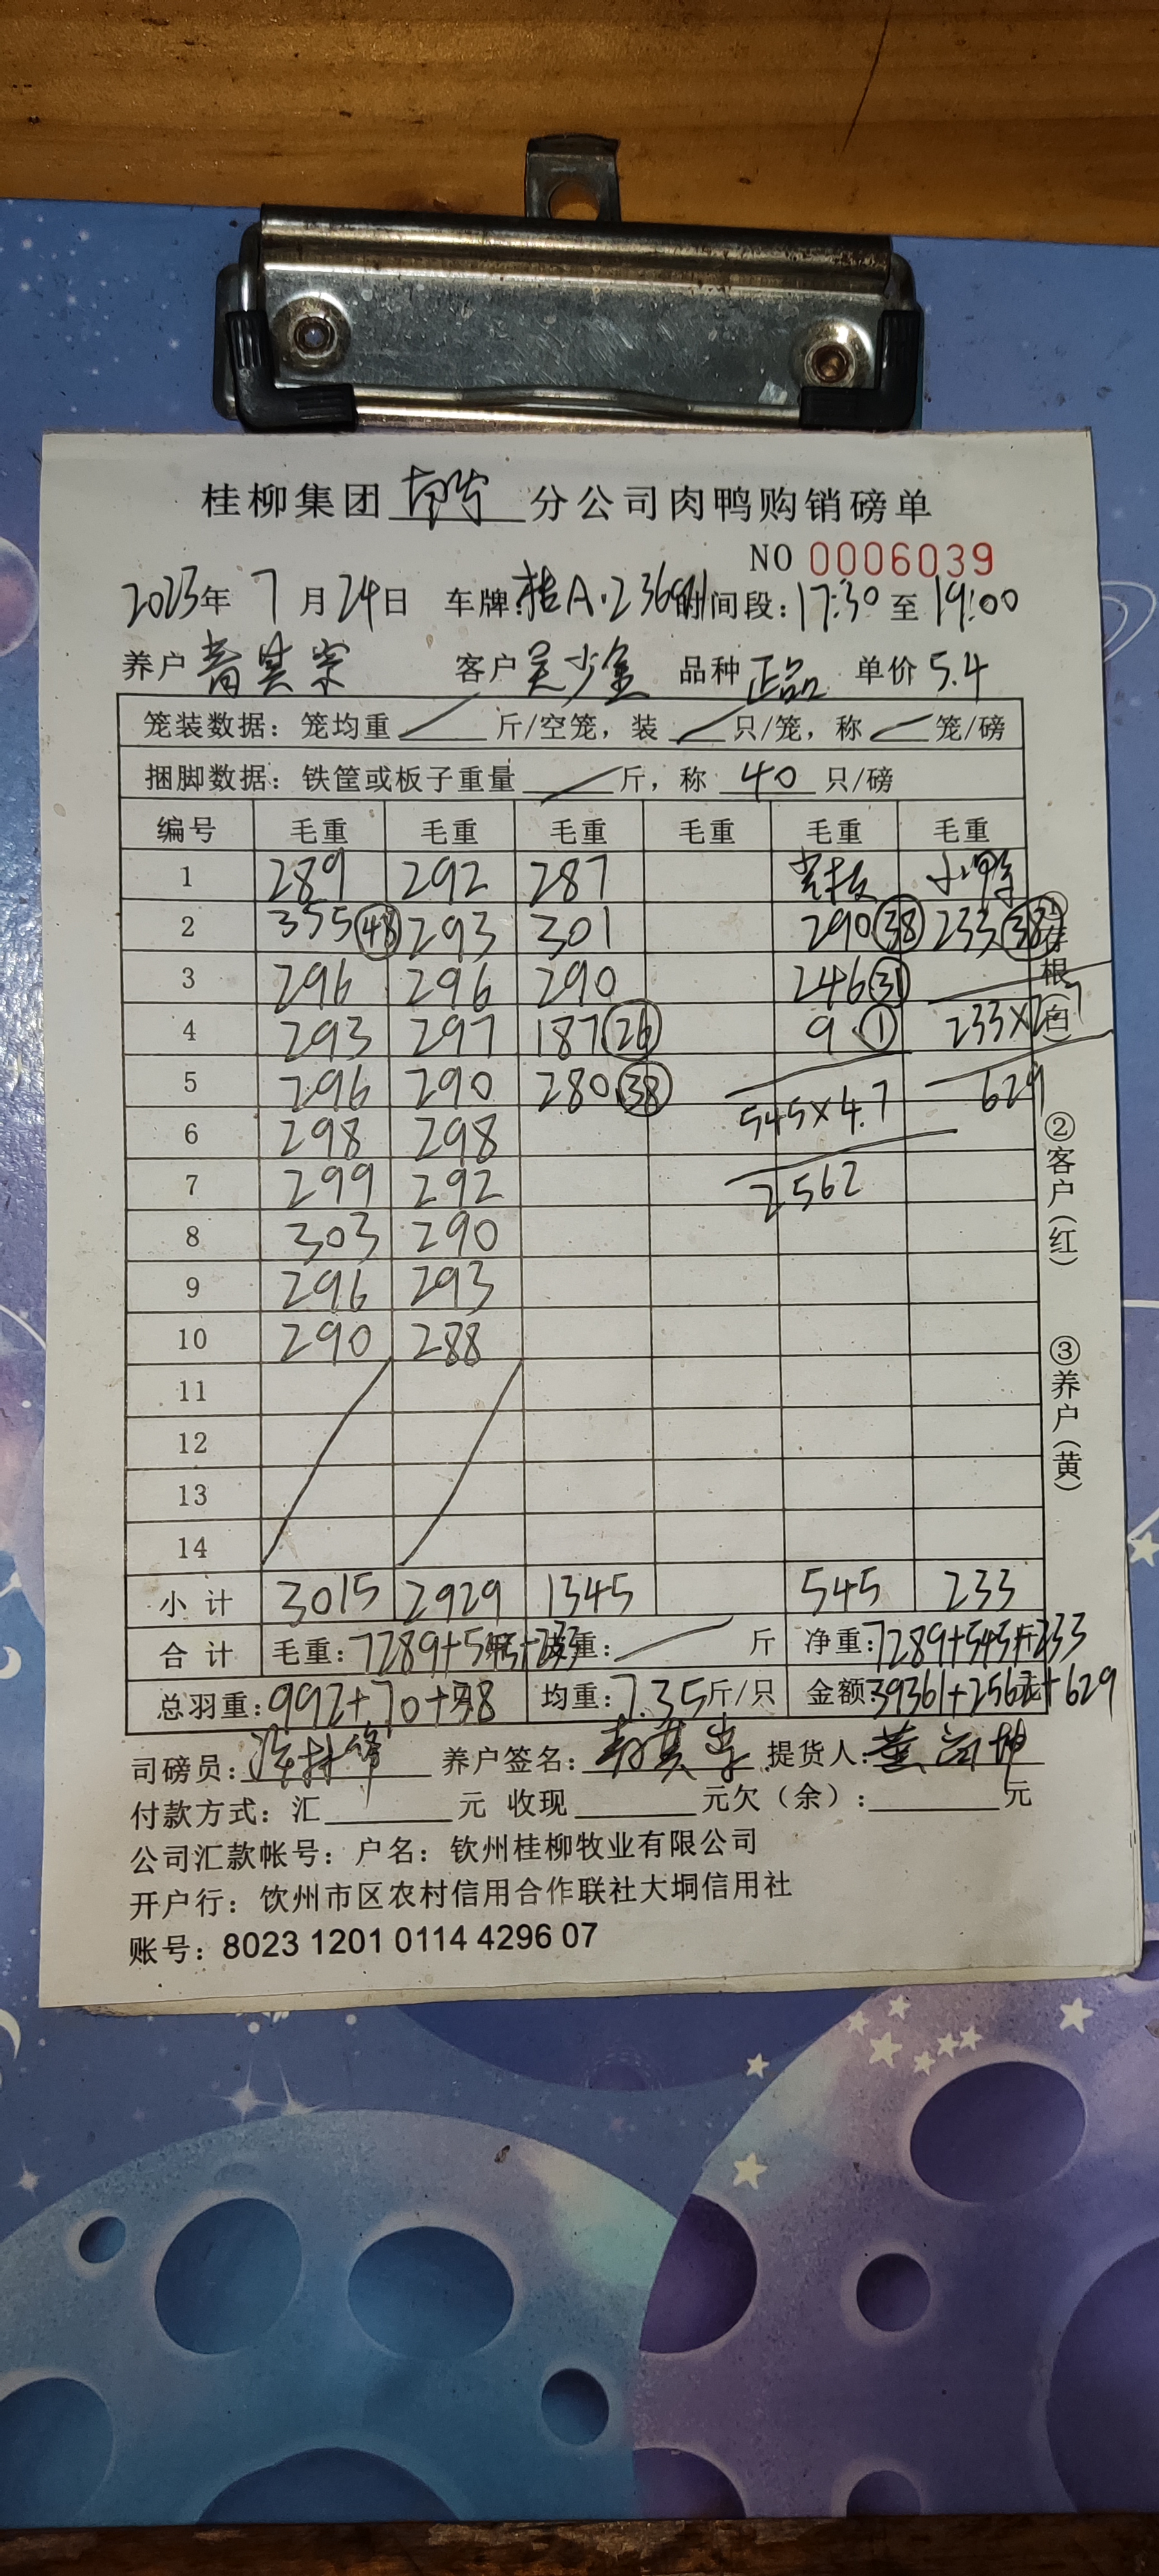 桂柳集团 南宁 分公司肉鸭购销磅单
NO 0006039
2023年 7月24日 车牌:桂A·236 时间段:17:30至19:00
养户 其宗 客户 吴少金 品种 正品 单价 5.4
笼装数据：笼均重 斤/空笼，装 只/笼，称 笼/磅
捆脚数据：铁筐或板子重量 斤，称 40 只/磅
编号 毛重 毛重 毛重 毛重 毛重 毛重
1 289 292 287 小鸭
2 355 (48) 293 301 290 (38) 233 (38)
3 296 296 290 246 (31)
4 293 297 187 (26) 9 (1) 233×2.7
5 296 290 280 (38) 545×4.7 629
6 298 298
7 299 292 2562
8 303 290
9 296 293
10 290 288
11
12
13
14
小计 3015 2929 1345 545 233
合计 毛重:7289+545+233 皮重: 斤 净重:7289+545+233
总羽重:992+70+38 均重:7.35斤/只 金额:39361+2562+629
司磅员: 养户签名: 其宗 提货人:黄
付款方式：汇 元 收现 元欠（余）: 元
公司汇款帐号：户名：钦州桂柳牧业有限公司
开户行：饮州市区农村信用合作联社大垌信用社
账号：8023 1201 0114 4296 07
①存根(白)
②客户(红)
③养户(黄)